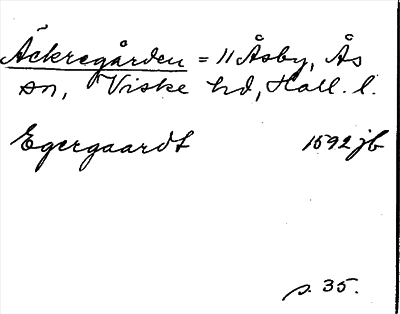 Äckregården = 11 Åsby, Ås
sn, Viske hd, Hall. l.
Egergaardt 1592 jb
s. 35.